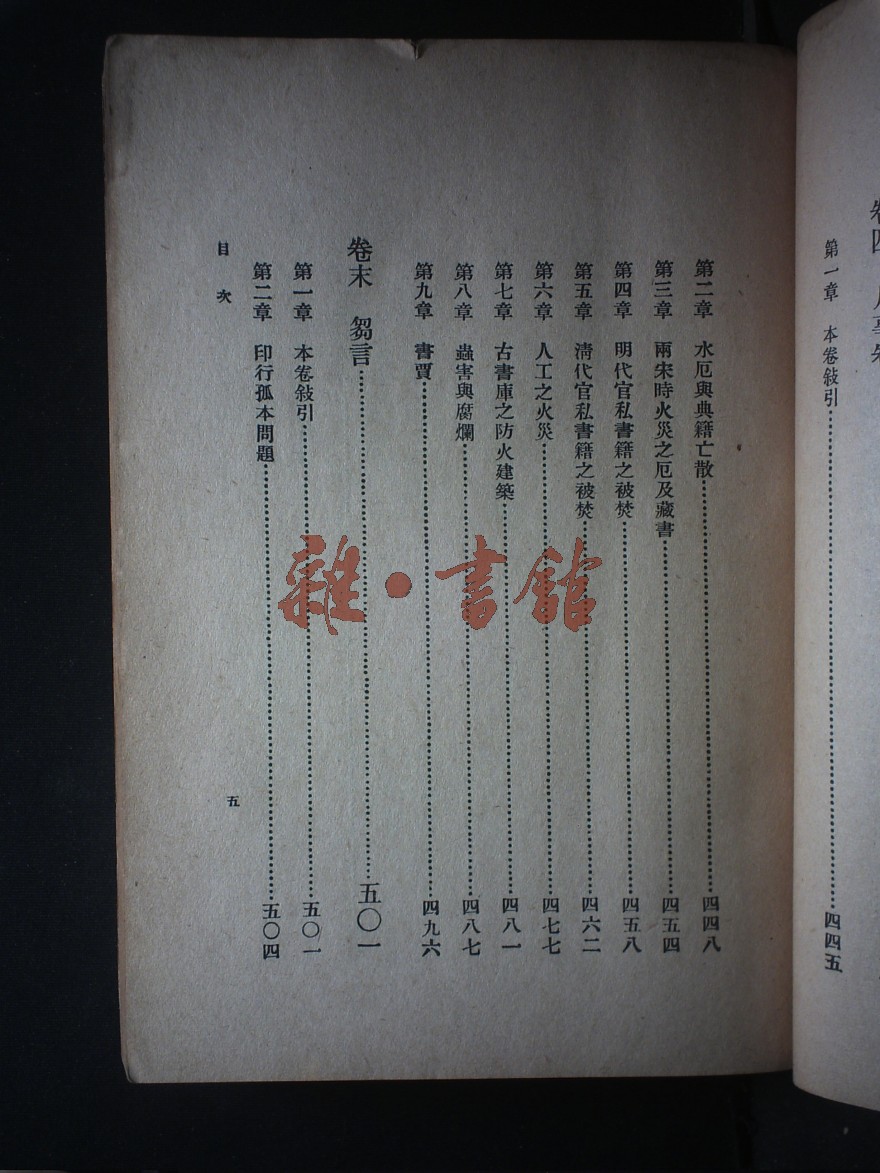 卷四 人事
第一章 本卷敍引 四四五
第二章 水厄與典籍亡散 四四八
第三章 兩宋時火災之厄及藏書 四五四
第四章 明代官私書籍之被焚 四五八
第五章 淸代官私書籍之被焚 四六二
第六章 人工之火災 四七七
第七章 古書庫之防火建築 四八一
第八章 蟲害與腐爛 四八七
第九章 書賈 四九六
卷末 芻言 五〇一
第一章 本卷敍引 五〇一
第二章 印行孤本問題 五〇四
目次
五
雜·書館